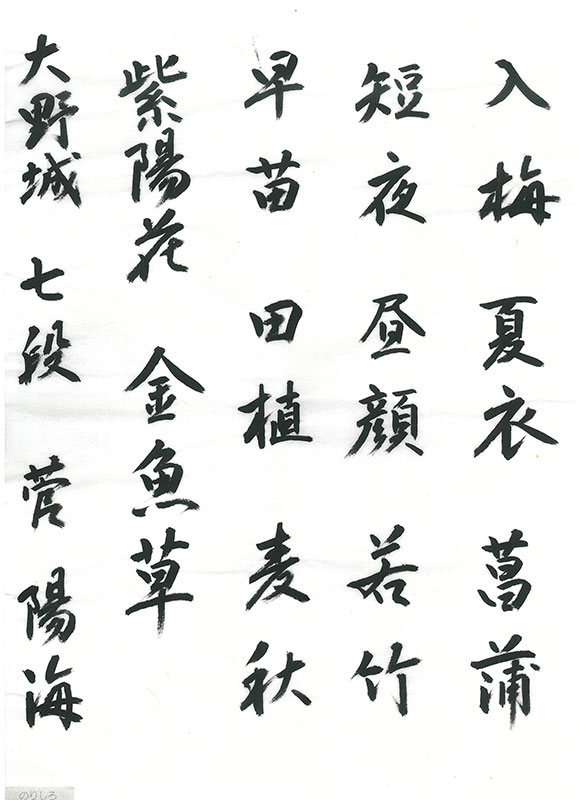 入梅 夏衣 菖蒲
短夜 昼顔 若竹
早苗 田植 麦秋
紫陽花 金魚草
大野城 七段 菅陽海
のりしろ